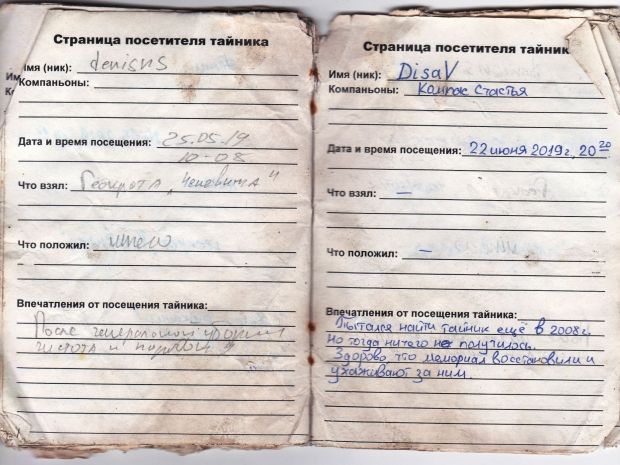 Страница посетителя тайника
Имя (ник): denisus
Им
К
Компаньоны:
Дата и время посещения: 25.05.19
10-08
Что взял: Геокрота "
Что положил:
Впечатления от посещения тайника:
После генеральной уборки
чистота и порядок
Страница посетителя тайник
Имя (ник): DisaV
Компаньоны: Компас Стастья
Дата и время посещения: 22 июня 2019г, 20 20
Что взял: —
Что положил: —
Впечатления от посещения тайника:
Пытался найти тайник ещё в 2008г.
но тогда ничего не получилось.
Здорово, что мемориал восстановили и
ухаживают за ним.